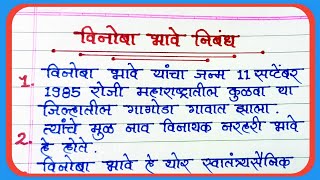 विनोबा भावे निबंध
1. विनोबा भावे यांचा जन्म 11 सप्टेंबर
1985 रोजी महाराष्ट्रातील कुळवा या
जिल्हातील गागोडा गावात झाला.
2. त्यांचे मुळ नाव विनायक नरहरी भावे
हे होते.
विनोबा भावे हे थोर स्वातंत्र्यसैनिक